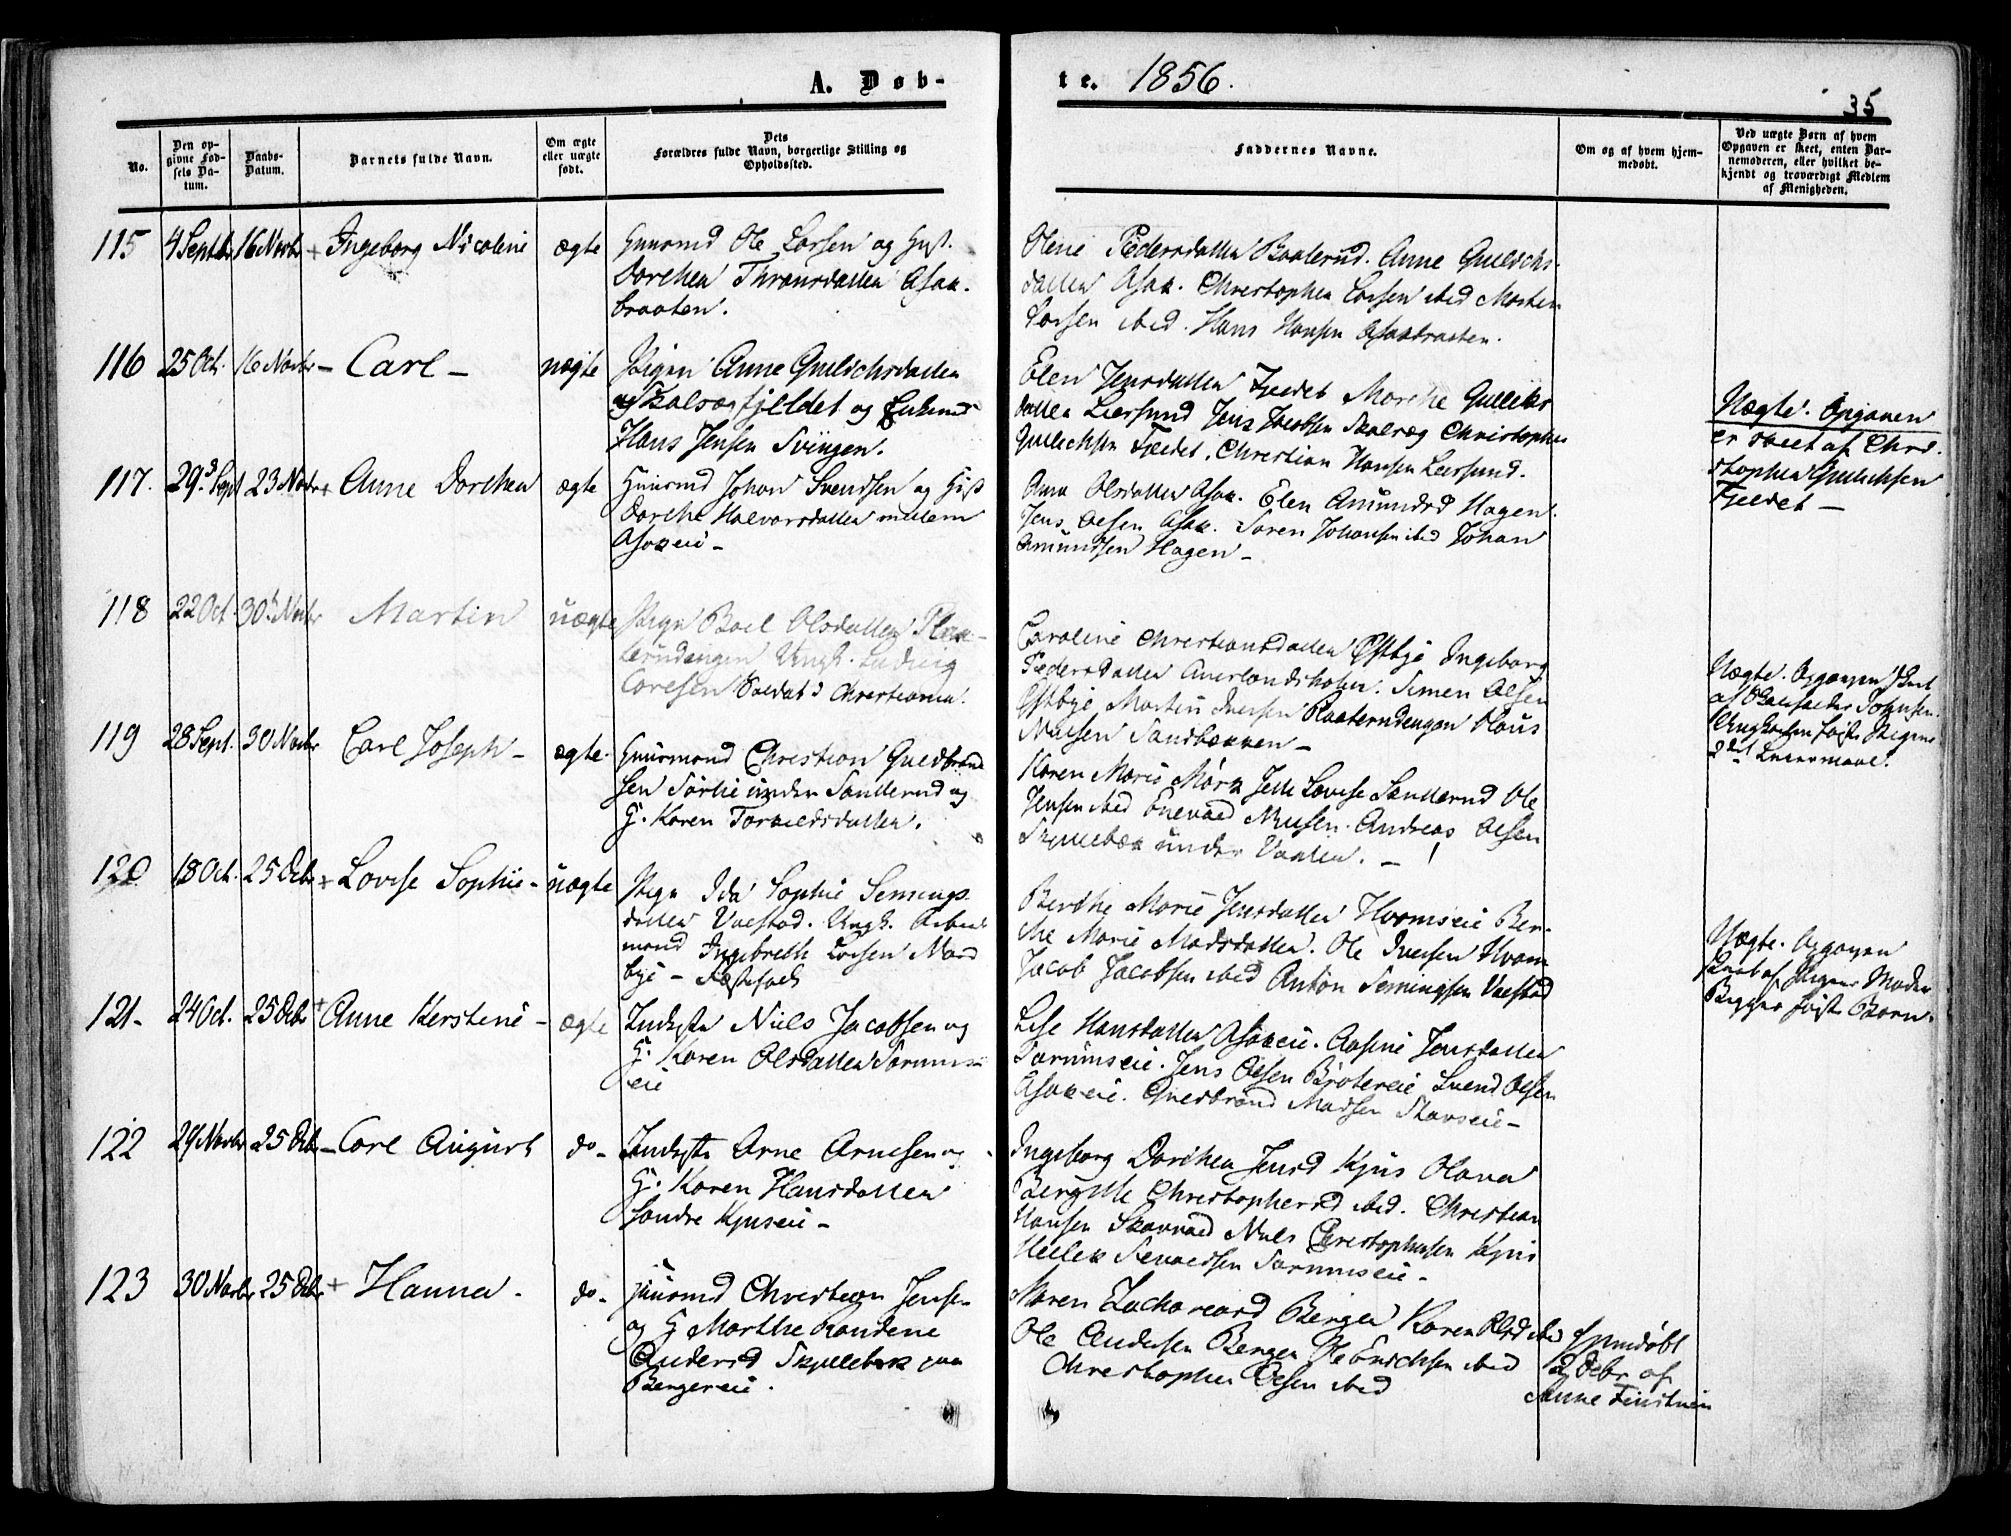 A. Døb-
te. 1856.
35
No.
Den op-
givne Fød-
sels Da-
tum.
Daabs-
Datum.
Barnets fulde Navn.
Om ægte
eller uægte
født.
Dets
Forældres fulde Navn, borgerlige Stilling og
Opholdssted.
Faddernes Navne.
Om og af hvem hjem-
medøbt.
Ved uægte Børn af hvem
Opgaven er skeet, enten Bar-
nemoderen, eller hvilket be-
kjendt og troværdigt Medlem
af Menigheden.
115 4 Septbr 16 Novbr + Ingeborg Nicoline ægte Huusmd Ole Larsen og Hust.
Dorthea Thronsdatter Asak-
braaten.
Oline Pedersdatter Baalerud. Anne Gulichs-
datter Asak. Christopher Larsen ibid Morten
Larsen ibid. Hans Hansen Asakbraaten.
116 25 Oct. 16 Novbr - Carl - uægte Pigen Anne Gulichsdatter
Skalsægfjeldet og
Hans Jensen Svingen.
Elen Jensdatter Fjeldet Marthe Gulliks
datter Leersund Jens Jacobsen Skalræg Christopher
Gulichsen Fjeldet. Christian Hansen Leersund.
Uægte. Opgaven
er skeet af Chri-
stopher Gulichsen
Fjeldet -
117. 29 Sept 23 Novbr + Anne Dorthea ægte Huusmd Johan Svendsen og Hust
Dorthe Halvorsdatter mellem
Asakeie -
Anne Olsdatter Asak. Elen Amundsd Hagen.
Jens Olsen Asak. Søren Johansen ibid Johan
Amundsen Hagen -
118 22 Oct. 30 Novbr Martin uægte Pige Boel Olsdatter Plaa-
terudengen Ungk. Ludvig
Coresen Soldat i Christiania.
Caroline Christiansdatter Østbye Ingeborg
Pedersdatter Aurlandsholen. Simen Olsen
Østbye Martin Iversen Plaaterudengen Klaus
Nielsen Sandbækken -
Uægte. Opgaven skeet
af
Ungkarlen første Pigens
2det Leiermaal.
119 28 Sept. 30 Novbr Carl Joseph - ægte. Huusmand Christian Guldbrand
sen Sørlie under Sanderud og
H. Karen Torkildsdatter.
Karen Marie Mørk Lovise Sanderud Ole
Jensen ibid Enevald Nielsen. Andreas Olsen
Skjullebæk under Vaaler. -
120 18 Oct. 25 Debr + Lovise Sophie - uægte Pige Ida Sophie Semings-
datter Valstad. Ungk. Arbeids
mand Ingebreth Larsen Nord
bye - Fæstefolk
Berthe Marie Jensdatter Hvamseie Ber-
the Marie Madsdatter. Ole Iversen Hvam
Jacob Jacobsen ibid Anton Semingsen Valstad
Uægte. Opgaven
skeet af Pigens Moder
Begges første Barn.
121- 24 Oct. 25 Debr + Anne Kirstine - ægte Inderste Niels Jacobsen og
H. Karen Olsdatter Sørums-
eie
Lise Hansdatter Asakeie. Aasine Jensdatter
Sørumseie. Jens Olsen Brotereie Svend Olsen
Asakeie. Guldbrand Madsen Stavseie -
122 29 Novbr 25 Debr - Carl August do - Inderste Arne Arnesen og
H. Karen Hansdatter
søndre Kjuseie -
Ingeborg Dorthea Jensd Kjus Olava
Birgitte Christophersd ibid. Christian
Hansen Skovvald Niels Christophersen Kjus
Hellek Sivaldsen Sørumseie -
123 30 Novbr 25 Debr + Hanna - do - Huusmd Christian Jensen
og H Marthe Randine
Andersd Skjullebæk paa
Bergereie.
Maren Zachariasd Berger Karen Olsd ibid
Ole Andersen Berger Ole Erichsen ibid
Christopher Olsen ibid
Hjemdøbt
2 Debr af
Anne